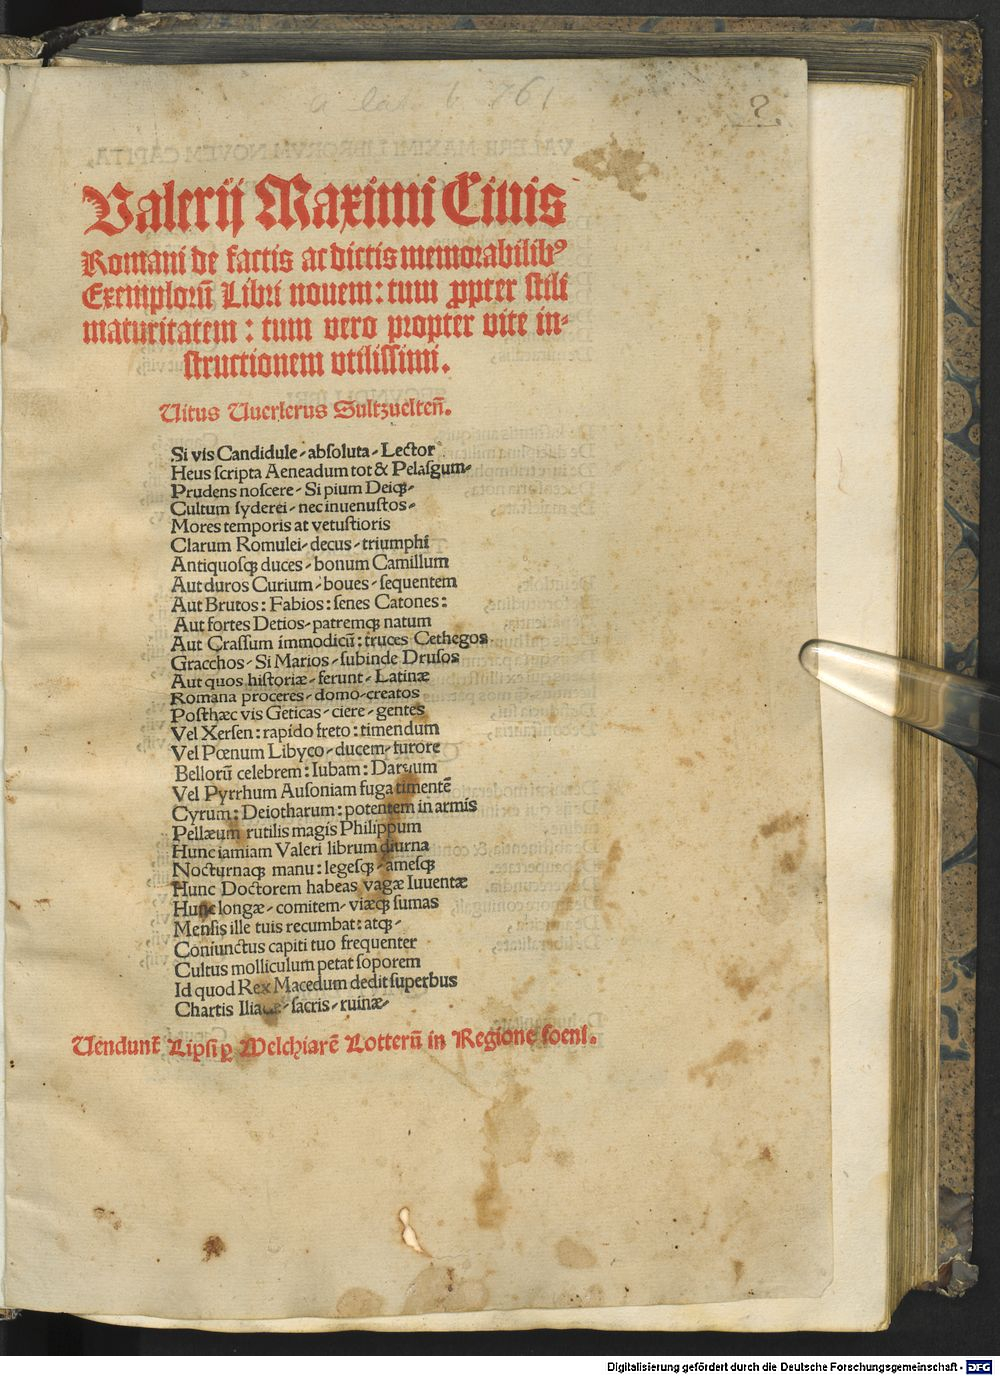 a lat b 761
2.
Valerij Maximi Ciuis
Romani de factis ac dictis memorabilibꝰ
Exemploꝝ̃ Libri nouem: tum ꝓpter stili
maturitatem: tum vero propter vite in-
structionem vtilissimi.
Vitus Vuerlerus Sultzuelteñ.
Si vis Candidule-absoluta-Lector
Heus scripta Aeneadum tot & Pelasgum-
Prudens noscere-Si pium Deiqꝫ-
Cultum syderei-nec inuenustos-
Mores temporis at vetustioris
Clarum Romulei-decus-triumphi
Antiquosqꝫ duces-bonum Camillum
Aut duros Curium-boues-sequentem
Aut Brutos: Fabios: senes Catones:
Aut fortes Detios-patremqꝫ natum
Aut Crassum immodicũ: truces Cethegos
Gracchos-Si Marios-subinde Drusos
Aut quos historiæ-ferunt-Latinæ
Romana proceres-domo-creatos
Posthæc vis Geticas-ciere-gentes
Vel Xersen: rapido freto: timendum
Vel Pœnum Libyco-ducem-furore
Bellorũ celebrem: Iubam: Darium
Vel Pyrrhum Ausoniam fuga timentẽ
Cyrum: Deiotharum: potentem in armis
Pellæum rutilis magis Philippum
Hunc iamiam Valeri librum diurna
Nocturnaqꝫ manu: legesqꝫ-amesqꝫ
Hunc Doctorem habeas vagæ Iuuentæ
Hunc longæ-comitem-viæqꝫ sumas
Mensis ille tuis recumbat: atqꝫ-
Coniunctus capiti tuo frequenter
Cultus molliculum petat soporem
Id quod Rex Macedum dedit superbus
Chartis Iliacæ-sacris-ruinæ-
Vendunt̃ Lipsi ꝑ Melchiarẽ Lotterũ in Regione foeni.
Digitalisierung gefördert durch die Deutsche Forschungsgemeinschaft - DFG